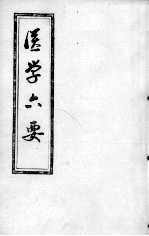 医学六要